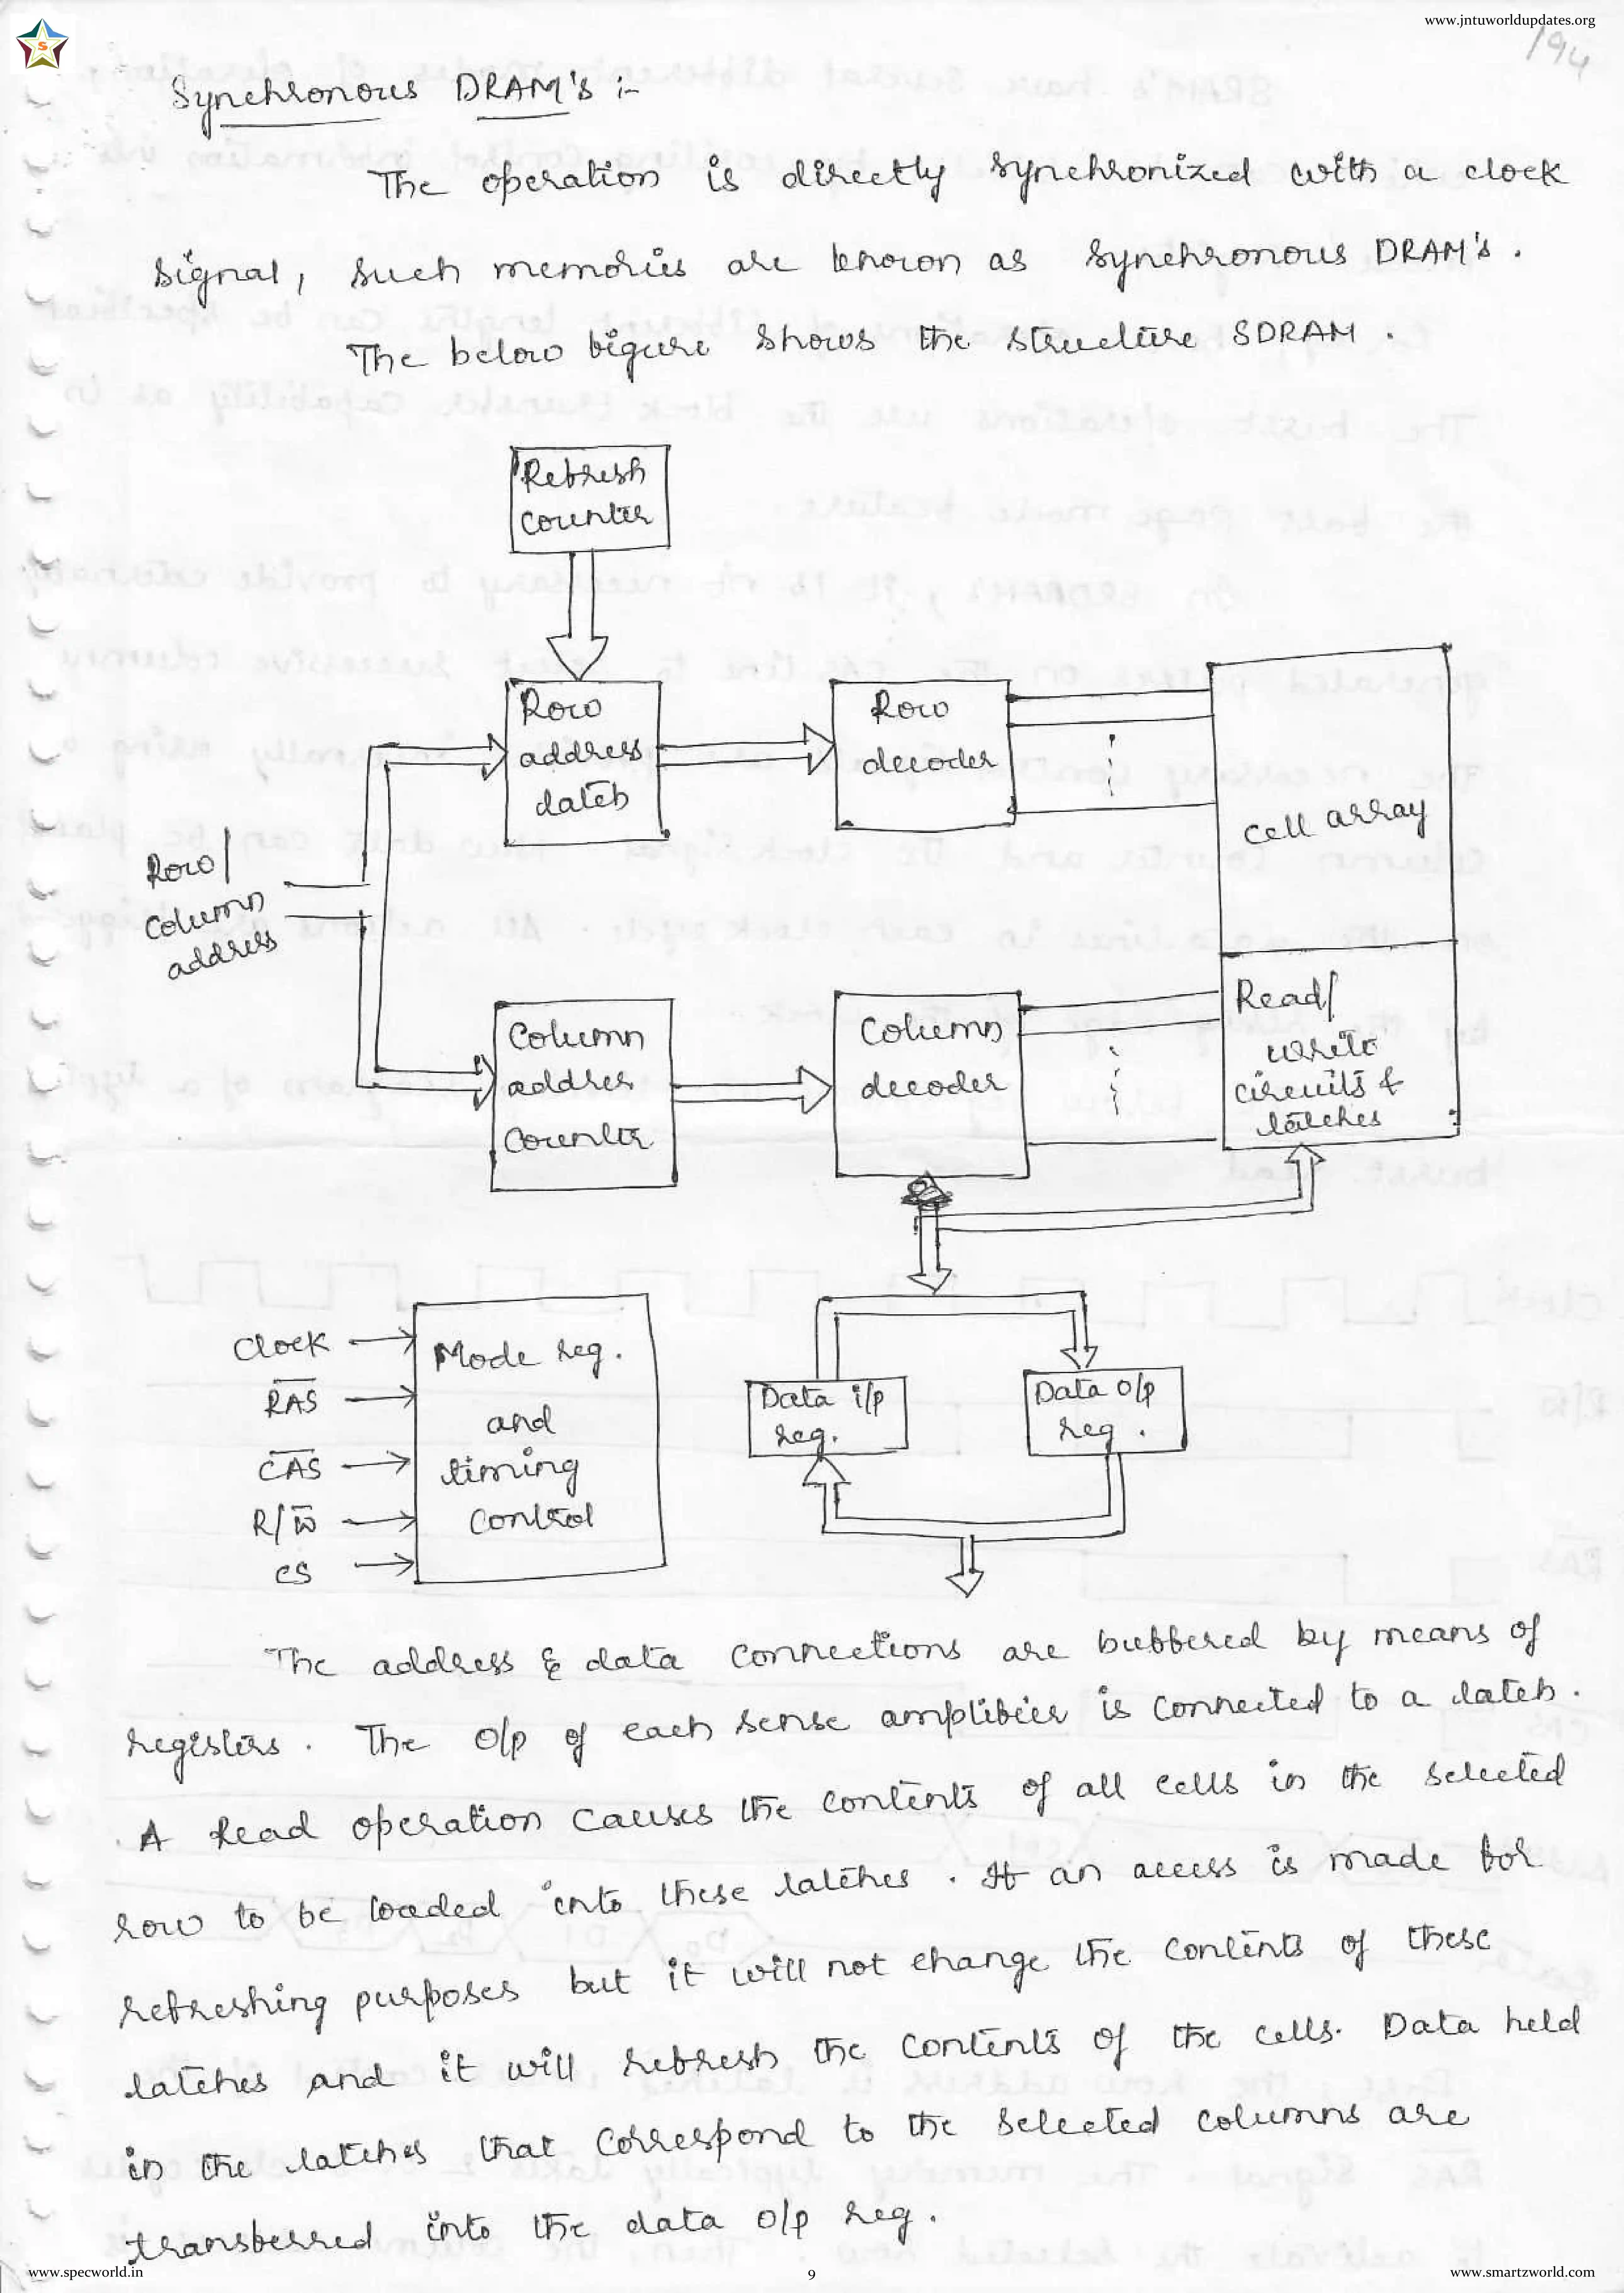 www.jntuworldupdates.org
194
Synchronous DRAM's :-
The operation is directly synchronized with a clock
signal, such memories are known as synchronous DRAM's.
The below figure shows the structure SDRAM.
Refresh
counter
Row
address
latch
Row
decoder
cell array
Row/
column
address
Column
addres
counter
Column
decoder
Read/
write
circuits &
latches
Clock
R̅A̅S̅
C̅A̅S̅
R/W̅
CS
Mode reg.
and
timing
control
Data i/p
reg.
Data o/p
reg.
The address & data connections are buffered by means of
registers. The o/p of each sense amplifier is connected to a latch.
A read operation causes the contents of all cells in the selected
row to be loaded into these latches. If an access is made for
refreshing purposes but it will not change the contents of these
latches and it will refresh the contents of the cells. Data held
in the latches that correspond to the selected columns are
transferred into the data o/p reg.
www.specworld.in
9
www.smartzworld.com